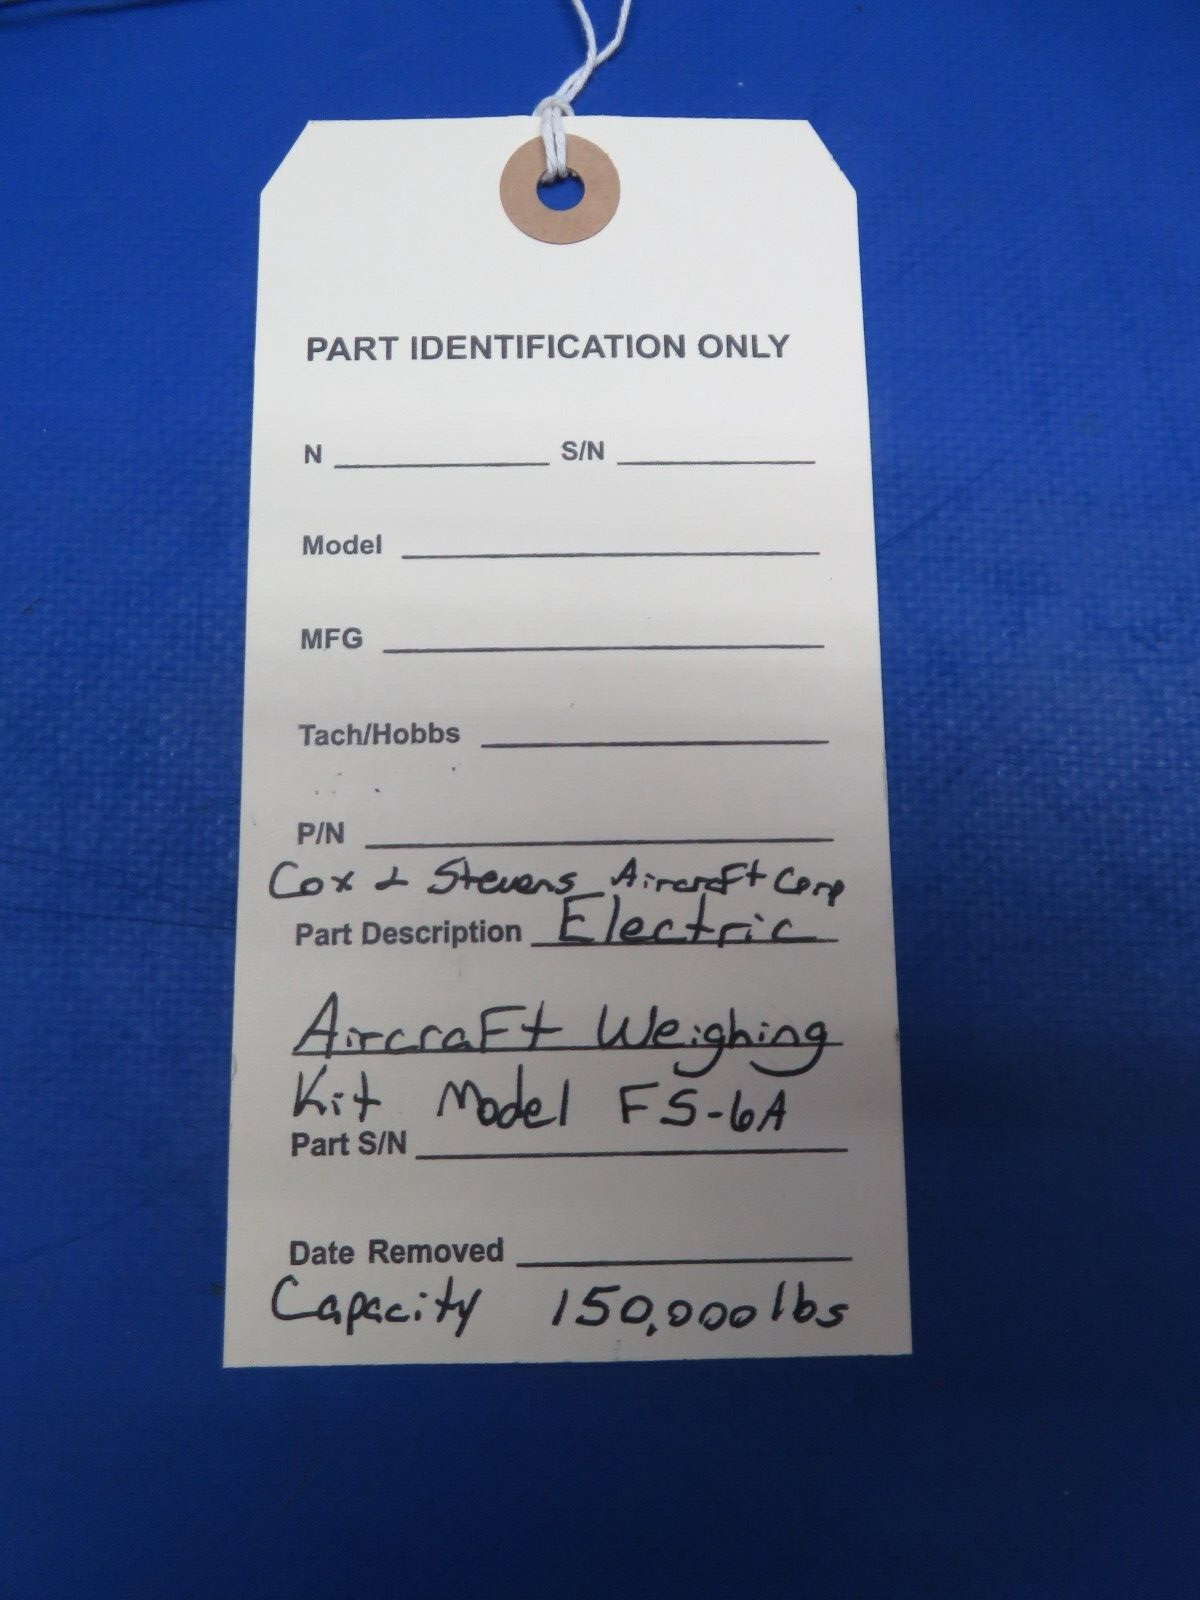 PART IDENTIFICATION ONLY
N S/N
Model
MFG
Tach/Hobbs
P/N
Cox & Stevens Aircraft Corp
Part Description Electric
Aircraft Weighing
Kit Model FS-6A
Part S/N
Date Removed
Capacity 150,000 lbs